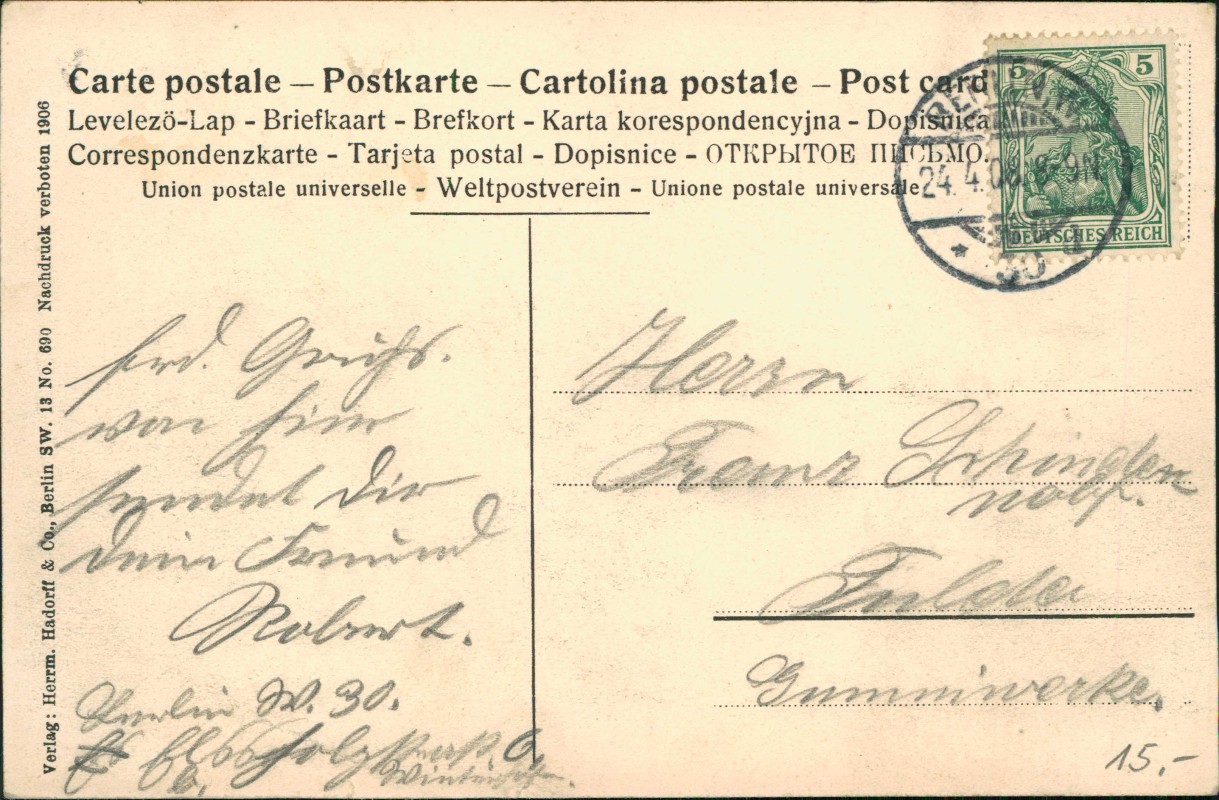 Carte postale – Postkarte – Cartolina postale – Post card
Levelezö-Lap - Briefkaart - Brefkort - Karta korespondencyjna - Dopisnica
Correspondenzkarte - Tarjeta postal - Dopisnice - ОТКРЫТОЕ ПИСЬМО.
Union postale universelle - Weltpostverein - Unione postale universale
5 5
DEUTSCHES REICH
BERLIN W.
24.4.06. 8-9N.
* 30 d
Verlag: Herrm. Hadorff & Co., Berlin SW. 13 No. 690 Nachdruck verboten 1906
frd. Gruß.
von hier
sendet Dir
dein Freund
Robert.
Berlin W. 30.
6.
Herrn
Franz
Fulda
Gummiwerke.
15.-